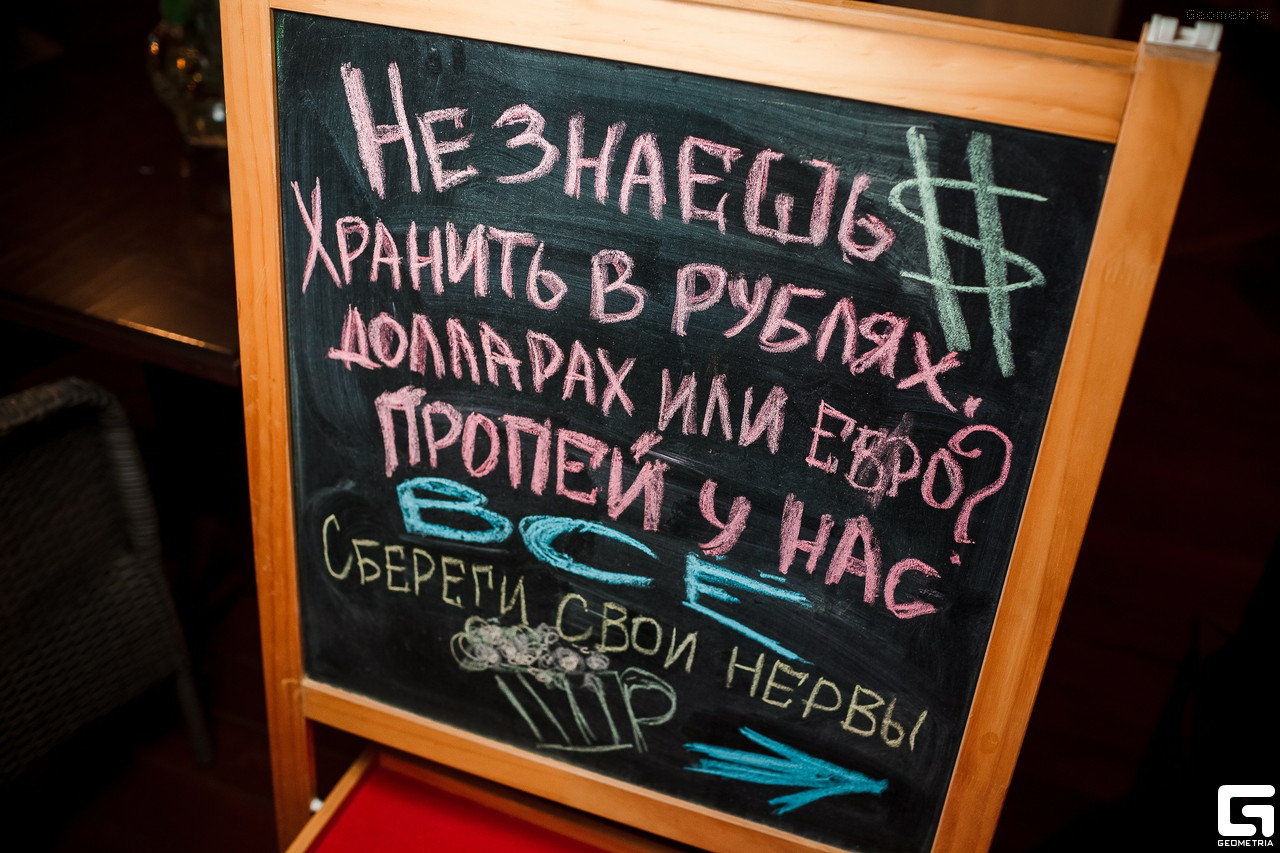 Geometria
НЕ ЗНАЕШЬ $
ХРАНИТЬ В РУБЛЯХ,
ДОЛЛАРАХ ИЛИ ЕВРО?
ПРОПЕЙ У НАС
ВСЕ
СБЕРЕГИ СВОИ НЕРВЫ
GEOMETRIA